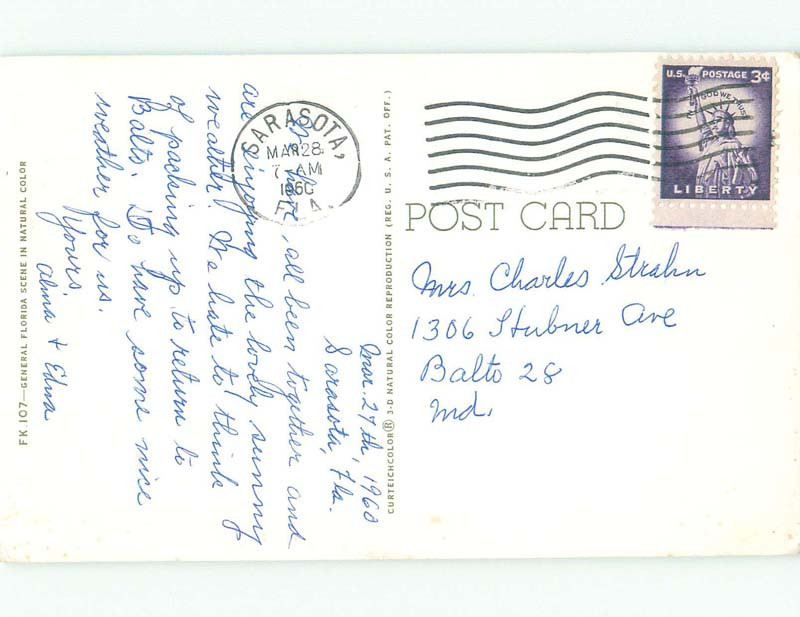 Mar. 27th, 1960
Sarasota, Fla.
have all been together and
are enjoying the lovely sunny
weather! We hate to think
of packing up to return to
Balto. Do have some nice
weather for us.
Yours,
Alma & Edna
SARASOTA,
MAR 28
7 AM
1960
FLA.
U.S. POSTAGE 3¢
IN GOD WE TRUST
LIBERTY
POST CARD
Mrs. Charles Strahn
1306 Stubner Ave
Balto 28
Md.
FK 107—GENERAL FLORIDA SCENE IN NATURAL COLOR
CURTEICHCOLOR® 3-D NATURAL COLOR REPRODUCTION (REG. U. S. A. PAT. OFF.)